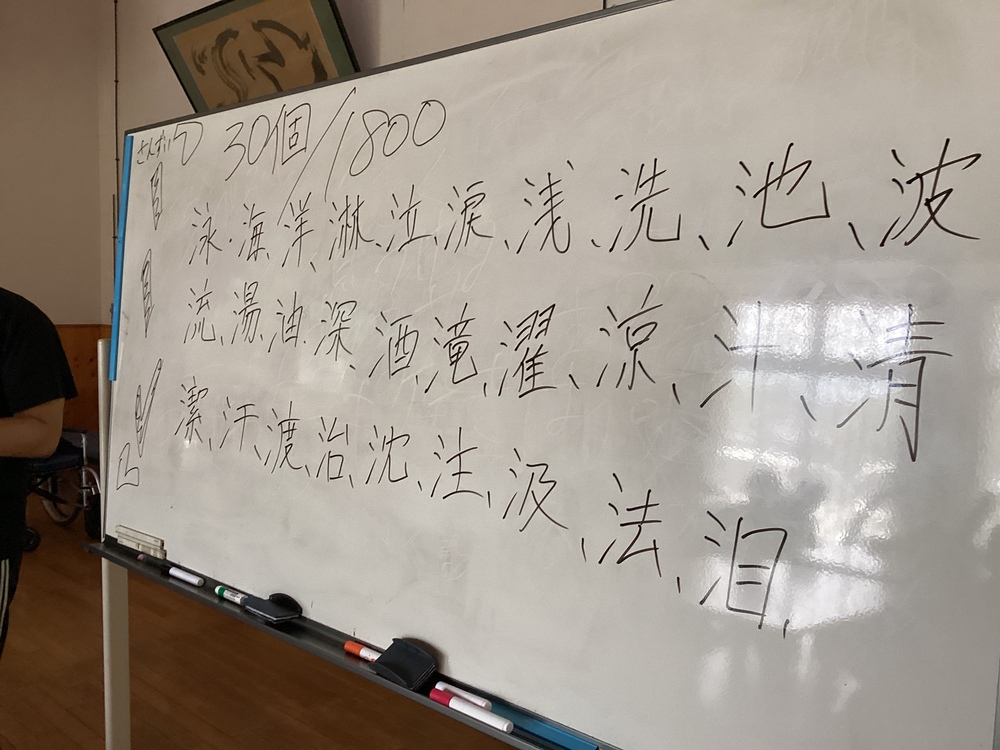 さんずい 30個/1800
泳、海、洋、淋、泣、涙、浅、洗、池、波
流、湯、油、深、酒、滝、濯、涼、汁、清
潔、汗、渡、治、沈、注、汲、法、泪、